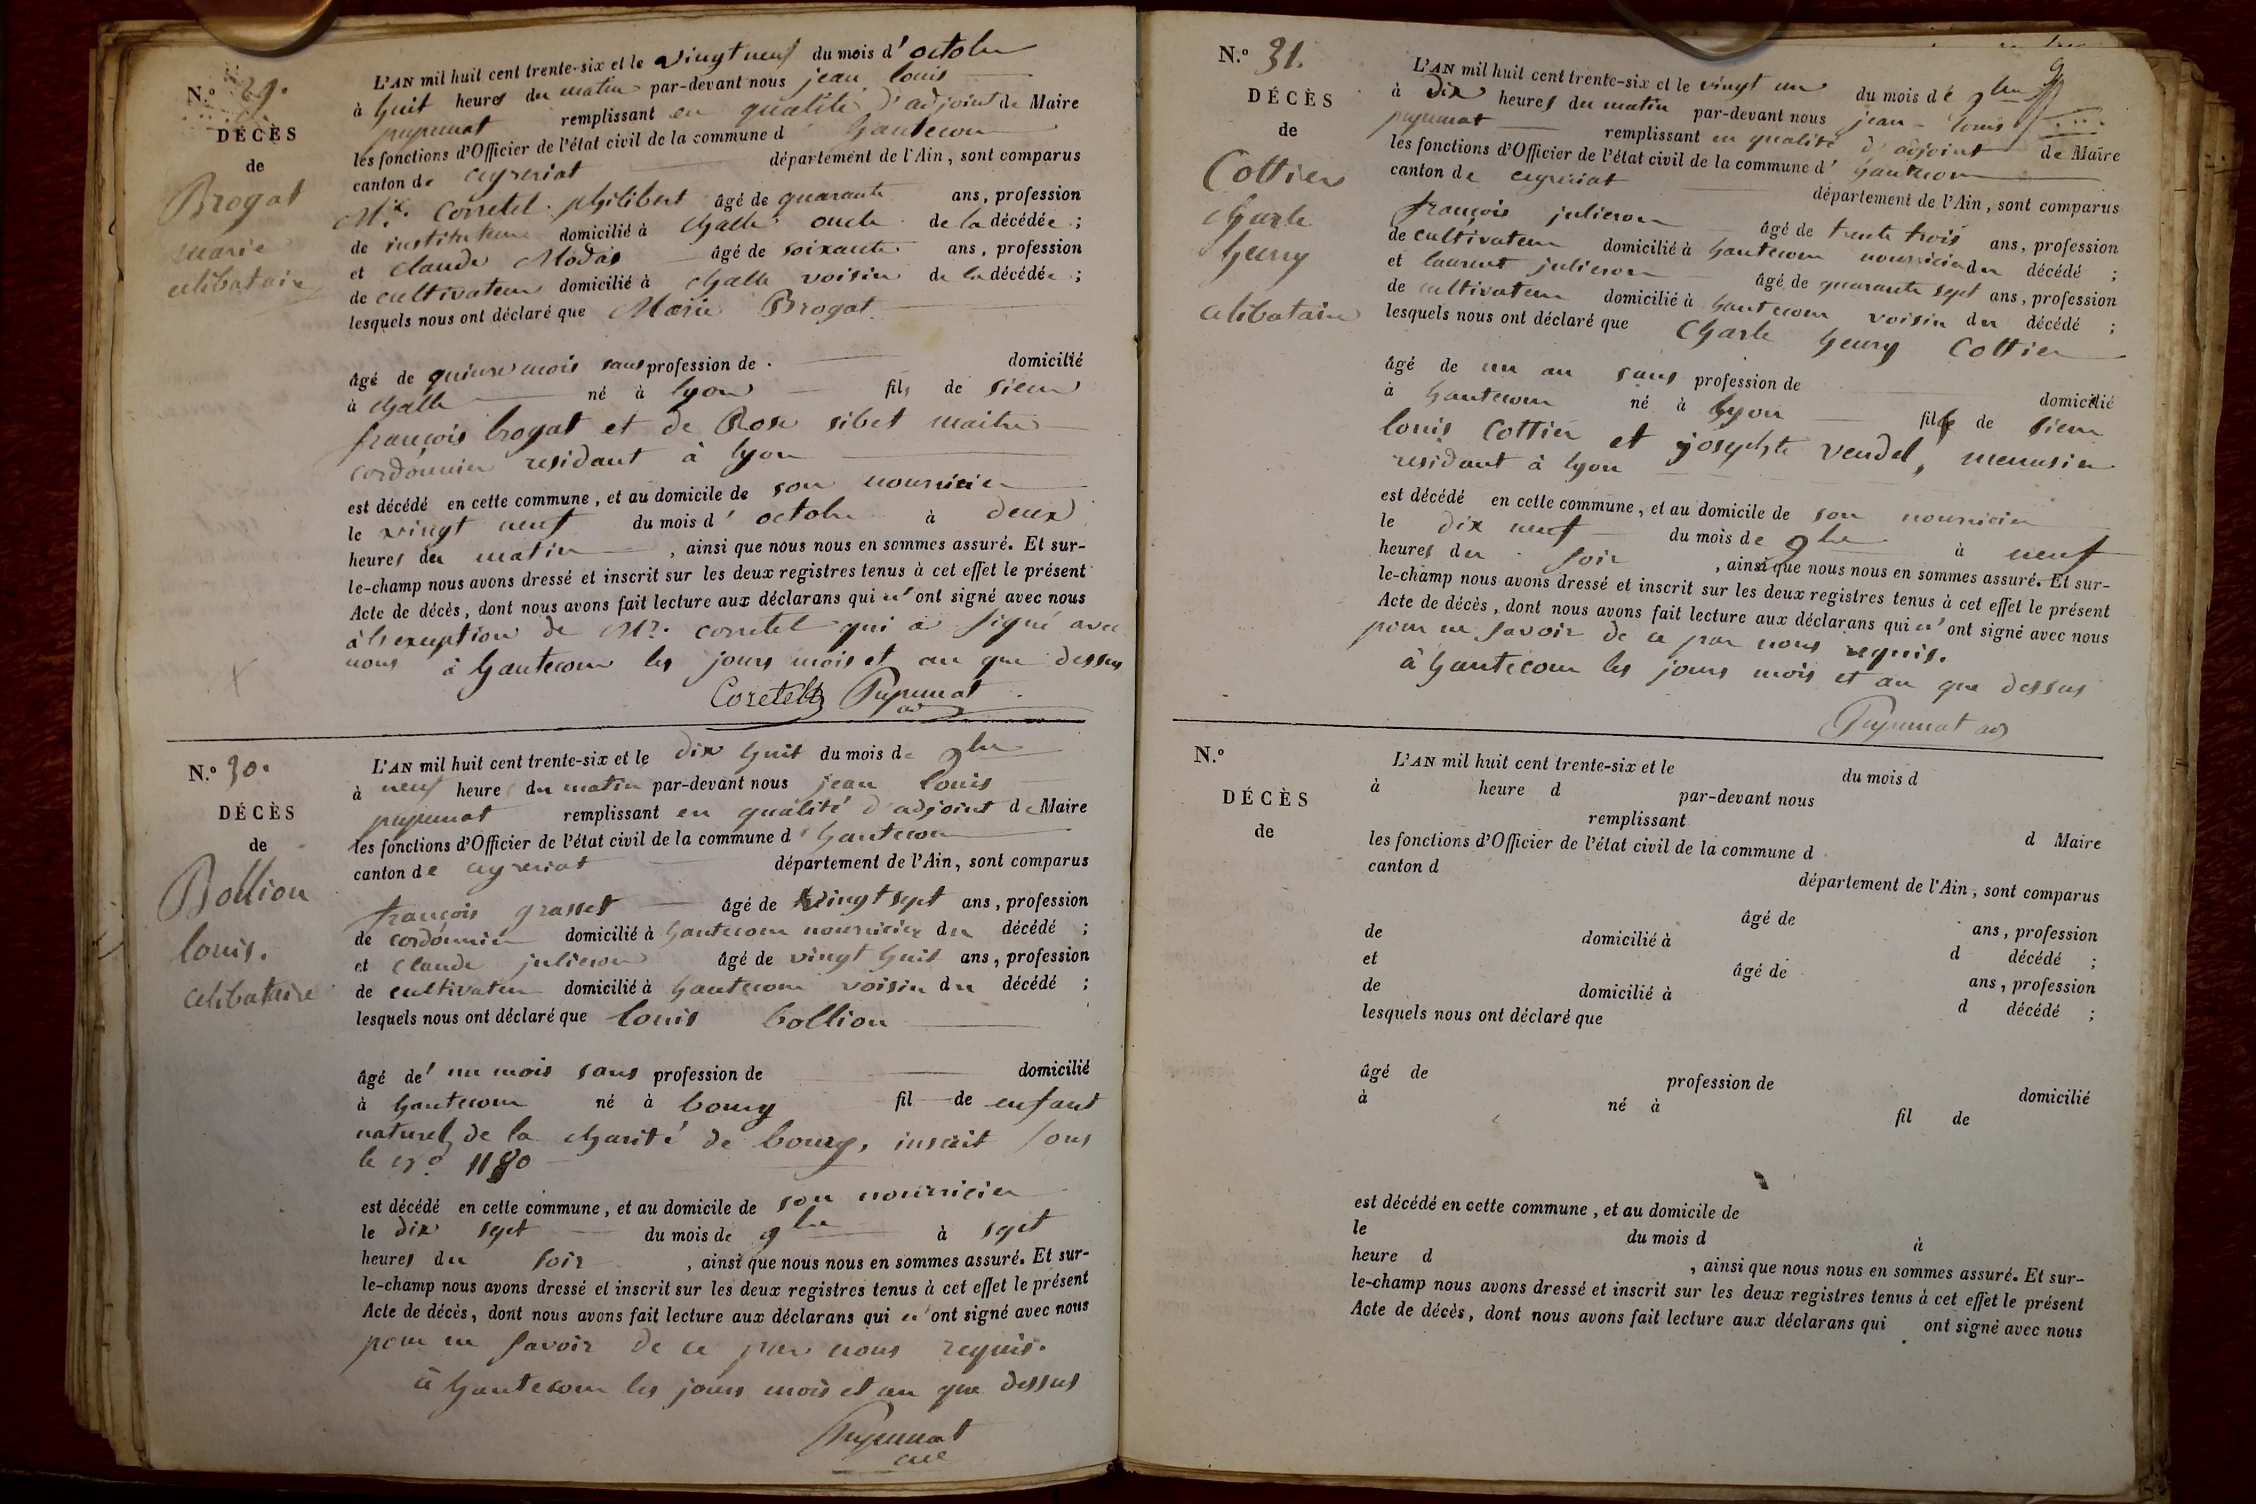 N.° 29.
DÉCÈS
de
Brogat
marie
celibataire
L'AN mil huit cent trente-six et le vingt neuf du mois d'octobre
à huit heures du matin par-devant nous jean louis
pupunat remplissant en qualité d'adjoint de Maire
les fonctions d'Officier de l'état civil de la commune d hautecour
canton de ceyzeriat département de l'Ain, sont comparus
Mr. Corretel philibert âgé de quarante ans, profession
de instituteur domicilié à challe oncle de la décédée ;
et claude Modas âgé de soixante ans, profession
de cultivateur domicilié à challe voisin de la décédée ;
lesquels nous ont déclaré que Marie Brogat
âgé de quinze mois sans profession de domicilié
à challe né à lyon fils de sieur
françois brogat et de Rose sibet maitre
cordonnier residant à lyon
est décédé en cette commune, et au domicile de son nourricier
le vingt neuf du mois d'octobre à deux
heures du matin, ainsi que nous nous en sommes assuré. Et sur-
le-champ nous avons dressé et inscrit sur les deux registres tenus à cet effet le présent
Acte de décès, dont nous avons fait lecture aux déclarans qui n'ont signé avec nous
à l'exeption de Mr. corretel qui a signé avec
nous à hautecour les jours mois et an que dessus
Coretel Pupunat
ad
N.° 30.
DÉCÈS
de
Bollion
louis.
celibataire
L'AN mil huit cent trente-six et le dix huit du mois de 9bre
à neuf heures du matin par-devant nous jean louis
pupunat remplissant en qualité d'adjoint de Maire
les fonctions d'Officier de l'état civil de la commune d'hautecour
canton de ceyzeriat département de l'Ain, sont comparus
françois grasset âgé de vingt sept ans, profession
de cordonnier domicilié à hautecour nourricier du décédé ;
et claude julieron âgé de vingt huit ans, profession
de cultivateur domicilié à hautecour voisin du décédé ;
lesquels nous ont déclaré que louis bollion
âgé de un mois sans profession de domicilié
à hautecour né à bourg fil de enfant
naturel de la charité de bourg, inscrit sous
le no 1180
est décédé en cette commune, et au domicile de son nourricier
le dix sept du mois de 9bre à sept
heures du soir, ainsi que nous nous en sommes assuré. Et sur-
le-champ nous avons dressé et inscrit sur les deux registres tenus à cet effet le présent
Acte de décès, dont nous avons fait lecture aux déclarans qui n'ont signé avec nous
pour ne savoir de ce par nous requis.
à hautecour les jours mois et an que dessus
Pupunat
N.° 31.
DÉCÈS
de
Cottier
charle
henry
celibataire
L'AN mil huit cent trente-six et le vingt un du mois de 9bre
à dix heures du matin par-devant nous jean louis
pupunat remplissant en qualité d'adjoint de Maire
les fonctions d'Officier de l'état civil de la commune d'hautecour
canton de ceyzeriat département de l'Ain, sont comparus
françois julieron âgé de trente trois ans, profession
de cultivateur domicilié à hautecour nourricier du décédé ;
et laurent julieron âgé de quarante sept ans, profession
de cultivateur domicilié à hautecour voisin du décédé ;
lesquels nous ont déclaré que Charle henry Cottier
âgé de un an sans profession de domicilié
à hautecour né à lyon fils de sieur
louis Cottier et josephte vendel, menusier
residant à lyon
est décédé en cette commune, et au domicile de son nourricier
le dix neuf du mois de 9bre à neuf
heures du soir, ainsi que nous nous en sommes assuré. Et sur-
le-champ nous avons dressé et inscrit sur les deux registres tenus à cet effet le présent
Acte de décès, dont nous avons fait lecture aux déclarans qui n'ont signé avec nous
pour ne savoir de ce par nous requis.
à hautecour les jours mois et an que dessus
Pupunat ad
N.°
DÉCÈS
de
L'AN mil huit cent trente-six et le du mois d
à heure d par-devant nous
remplissant d Maire
les fonctions d'Officier de l'état civil de la commune d
canton d département de l'Ain, sont comparus
âgé de ans, profession
de domicilié à d décédé ;
et âgé de ans, profession
de domicilié à d décédé ;
lesquels nous ont déclaré que
âgé de profession de domicilié
à né à fil de
est décédé en cette commune, et au domicile de
le du mois d à
heure d , ainsi que nous nous en sommes assuré. Et sur-
le-champ nous avons dressé et inscrit sur les deux registres tenus à cet effet le présent
Acte de décès, dont nous avons fait lecture aux déclarans qui ont signé avec nous